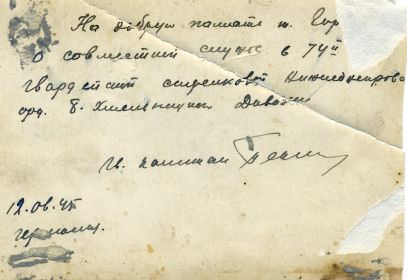 На добрую память т. Гор
о совместной службе в 74й
гвардейской стрелковой Нижнеднепровской
орд. Б. Хмельницкого Дивизии
Гв. капитан
12.06.45
Германия.